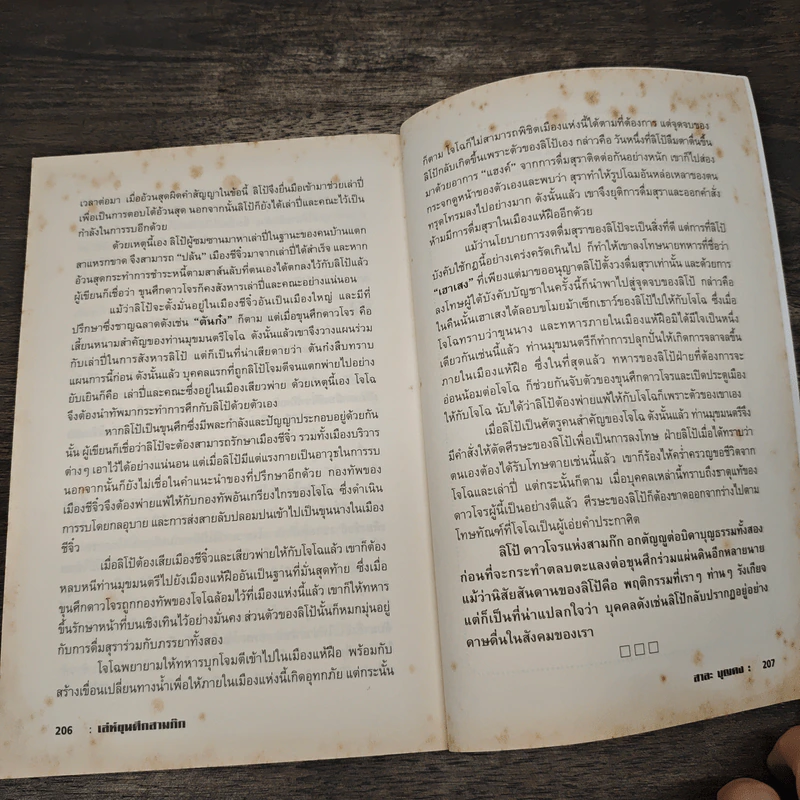 เวลาต่อมา เมื่ออ้วนสุดผิดคำสัญญาในข้อนี้ ลิโป้จึงยื่นมือเข้ามาช่วยเล่าปี่
เพื่อเป็นการตอบโต้อ้วนสุด นอกจากนั้นลิโป้ก็ยังได้เล่าปี่และคณะไว้เป็น
กำลังในการรบอีกด้วย
ด้วยเหตุนี้เอง ลิโป้ผู้ซมซานมาหาเล่าปี่ในฐานะของคนบ้านแตก
สาแหรกขาด จึงสามารถ "ปล้น" เมืองชีจิ๋วมาจากเล่าปี่ได้สำเร็จ และหาก
อ้วนสุดกระทำการชำระหนี้ตามสาส์นลับที่ตนเองได้ตกลงไว้กับลิโป้แล้ว
ผู้เขียนก็เชื่อว่า ขุนศึกดาวโจรก็คงสังหารเล่าปี่และคณะอย่างแน่นอน
แม้ว่าลิโป้จะตั้งมั่นอยู่ในเมืองชีจิ๋วอันเป็นเมืองใหญ่ และมีที่
ปรึกษาซึ่งชาญฉลาดดังเช่น "ตันก๋ง" ก็ตาม แต่เมื่อขุนศึกดาวโจร คือ
เสี้ยนหนามสำคัญของท่านมุขมนตรีโจโฉ ดังนั้นแล้วเขาจึงวางแผนร่วม
กับเล่าปี่ในการสังหารลิโป้ แต่ก็เป็นที่น่าเสียดายว่า ตันก๋งสืบทราบ
แผนการนี้ก่อน ดังนั้นแล้ว บุคคลแรกที่ถูกลิโป้โจมตีจนแตกพ่ายไปอย่าง
ยับเยินก็คือ เล่าปี่และคณะซึ่งอยู่ในเมืองเสียวพ่าย ด้วยเหตุนี้เอง โจโฉ
จึงต้องนำทัพมากระทำการศึกกับลิโป้ด้วยตัวเอง
หากลิโป้เป็นขุนศึกซึ่งมีพละกำลังและปัญญาประกอบอยู่ด้วยกัน
นั้น ผู้เขียนก็เชื่อว่าลิโป้จะต้องสามารถรักษาเมืองชีจิ๋ว รวมทั้งเมืองบริวาร
ต่างๆ เอาไว้ได้อย่างแน่นอน แต่เมื่อลิโป้มีแต่แรงกายเป็นอาวุธในการรบ
นอกจากนั้นก็ยังไม่เชื่อในคำแนะนำของที่ปรึกษาอีกด้วย กองทัพของ
เมืองชีจิ๋วจึงต้องพ่ายแพ้ให้กับกองทัพอันเกรียงไกรของโจโฉ ซึ่งดำเนิน
การรบโดยกลอุบาย และการส่งสายลับปลอมปนเข้าไปเป็นขุนนางในเมือง
ชีจิ๋ว
เมื่อลิโป้ต้องเสียเมืองชีจิ๋วและเสียวพ่ายให้กับโจโฉแล้ว เขาก็ต้อง
หลบหนีท่านมุขมนตรีไปยังเมืองแห้ฝืออันเป็นฐานที่มั่นสุดท้าย ซึ่งเมื่อ
ขุนศึกดาวโจรถูกกองทัพของโจโฉล้อมไว้ที่เมืองแห่งนี้แล้ว เขาก็ให้ทหาร
ขึ้นรักษาหน้าที่บนเชิงเทินไว้อย่างมั่นคง ส่วนตัวของลิโป้นั้นก็หมกมุ่นอยู่
กับการดื่มสุราร่วมกับภรรยาทั้งสอง
โจโฉพยายามให้ทหารบุกโจมตีเข้าไปในเมืองแห้ฝือ พร้อมกับ
สร้างเขื่อนเปลี่ยนทางน้ำเพื่อให้ภายในเมืองแห่งนี้เกิดอุทกภัย แต่กระนั้น
206 : เล่ห์ขุนศึกสามก๊ก
ก็ตาม โจโฉก็ไม่สามารถพิชิตเมืองแห่งนี้ได้ตามที่ต้องการ แต่จุดจบของ
ลิโป้กลับเกิดขึ้นเพราะตัวของลิโป้เอง กล่าวคือ วันหนึ่งที่ลิโป้ลืมตาตื่นขึ้น
มาด้วยอาการ "แฮงค์" จากการดื่มสุราติดต่อกันอย่างหนัก เขาก็ไปส่อง
กระจกดูหน้าของตัวเองและพบว่า สุราทำให้รูปโฉมอันหล่อเหลาของตน
ทรุดโทรมลงไปอย่างมาก ดังนั้นแล้ว เขาจึงยุติการดื่มสุราและออกคำสั่ง
ห้ามมีการดื่มสุราในเมืองแห้ฝืออีกด้วย
แม้ว่านโยบายการงดดื่มสุราของลิโป้จะเป็นสิ่งที่ดี แต่การที่ลิโป้
บังคับใช้กฎนี้อย่างเคร่งครัดเกินไป ก็ทำให้เขาลงโทษนายทหารที่ชื่อว่า
"เฮาเสง" ที่เพียงแต่มาขออนุญาตลิโป้ตั้งวงดื่มสุราเท่านั้น และด้วยการ
ลงโทษผู้ใต้บังคับบัญชาในครั้งนี้ก็นำพาไปสู่จุดจบของลิโป้ กล่าวคือ
ในคืนนั้นเฮาเสงได้ลอบขโมยม้าเซ็กเธาว์ของลิโป้ไปให้กับโจโฉ ซึ่งเมื่อ
โจโฉทราบว่าขุนนาง และทหารภายในเมืองแห้ฝือมิได้มีใจเป็นหนึ่ง
เดียวกันเช่นนี้แล้ว ท่านมุขมนตรีก็ทำการปลุกปั่นให้เกิดการจลาจลขึ้น
ภายในเมืองแห้ฝือ ซึ่งในที่สุดแล้ว ทหารของลิโป้ฝ่ายที่ต้องการจะ
อ่อนน้อมต่อโจโฉ ก็ช่วยกันจับตัวของขุนศึกดาวโจรและเปิดประตูเมือง
ให้กับโจโฉ นับได้ว่าลิโป้ต้องพ่ายแพ้ให้กับโจโฉก็เพราะตัวของเขาเอง
เมื่อลิโป้เป็นศัตรูคนสำคัญของโจโฉ ดังนั้นแล้ว ท่านมุขมนตรีจึง
มีคำสั่งให้ตัดศีรษะของลิโป้เพื่อเป็นการลงโทษ ฝ่ายลิโป้เมื่อได้ทราบว่า
ตนเองต้องได้รับโทษตายเช่นนี้แล้ว เขาก็ร้องไห้คร่ำครวญขอชีวิตจาก
โจโฉและเล่าปี่ แต่กระนั้นก็ตาม เมื่อบุคคลเหล่านี้ทราบถึงธาตุแท้ของ
ดาวโจรผู้นี้เป็นอย่างดีแล้ว ศีรษะของลิโป้ก็ต้องขาดออกจากร่างไปตาม
โทษทัณฑ์ที่โจโฉเป็นผู้เอ่ยคำประกาศิต
ลิโป้ ดาวโจรแห่งสามก๊ก อกตัญญูต่อบิดาบุญธรรมทั้งสอง
ก่อนที่จะกระทำตลบตะแลงต่อขุนศึกร่วมแผ่นดินอีกหลายนาย
แม้ว่านิสัยสันดานของลิโป้คือ พฤติกรรมที่เราๆ ท่านๆ รังเกียจ
แต่ก็เป็นที่น่าแปลกใจว่า บุคคลดังเช่นลิโป้กลับปรากฏอยู่อย่าง
ดาษดื่นในสังคมของเรา
□□□
สาละ บุญคง : 207